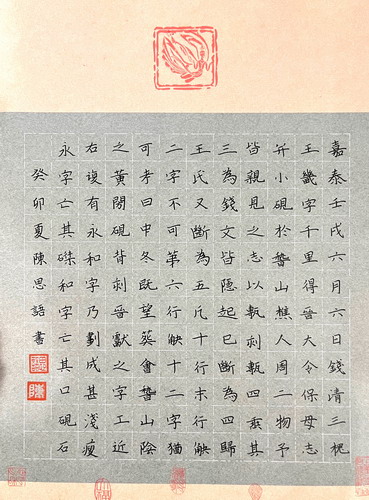 嘉泰壬戌六月六日錢清三槐
王畿字千里得晉大令保母志
并小硯於稽山樵人周二物予
皆親見之志以甎刺甎四垂其
三為錢文皆隱起已斷為四歸
王氏又斷為五凡十行末行觖
二字不可第六行觖十二字猶
可考曰中冬既望葬會稽山陰
之黃閍硯背刺晉獻之字工近
右復有永和字乃劃成甚淺瘦
永字亡其磔和字亡其口硯石
癸卯夏陳思語書
陳